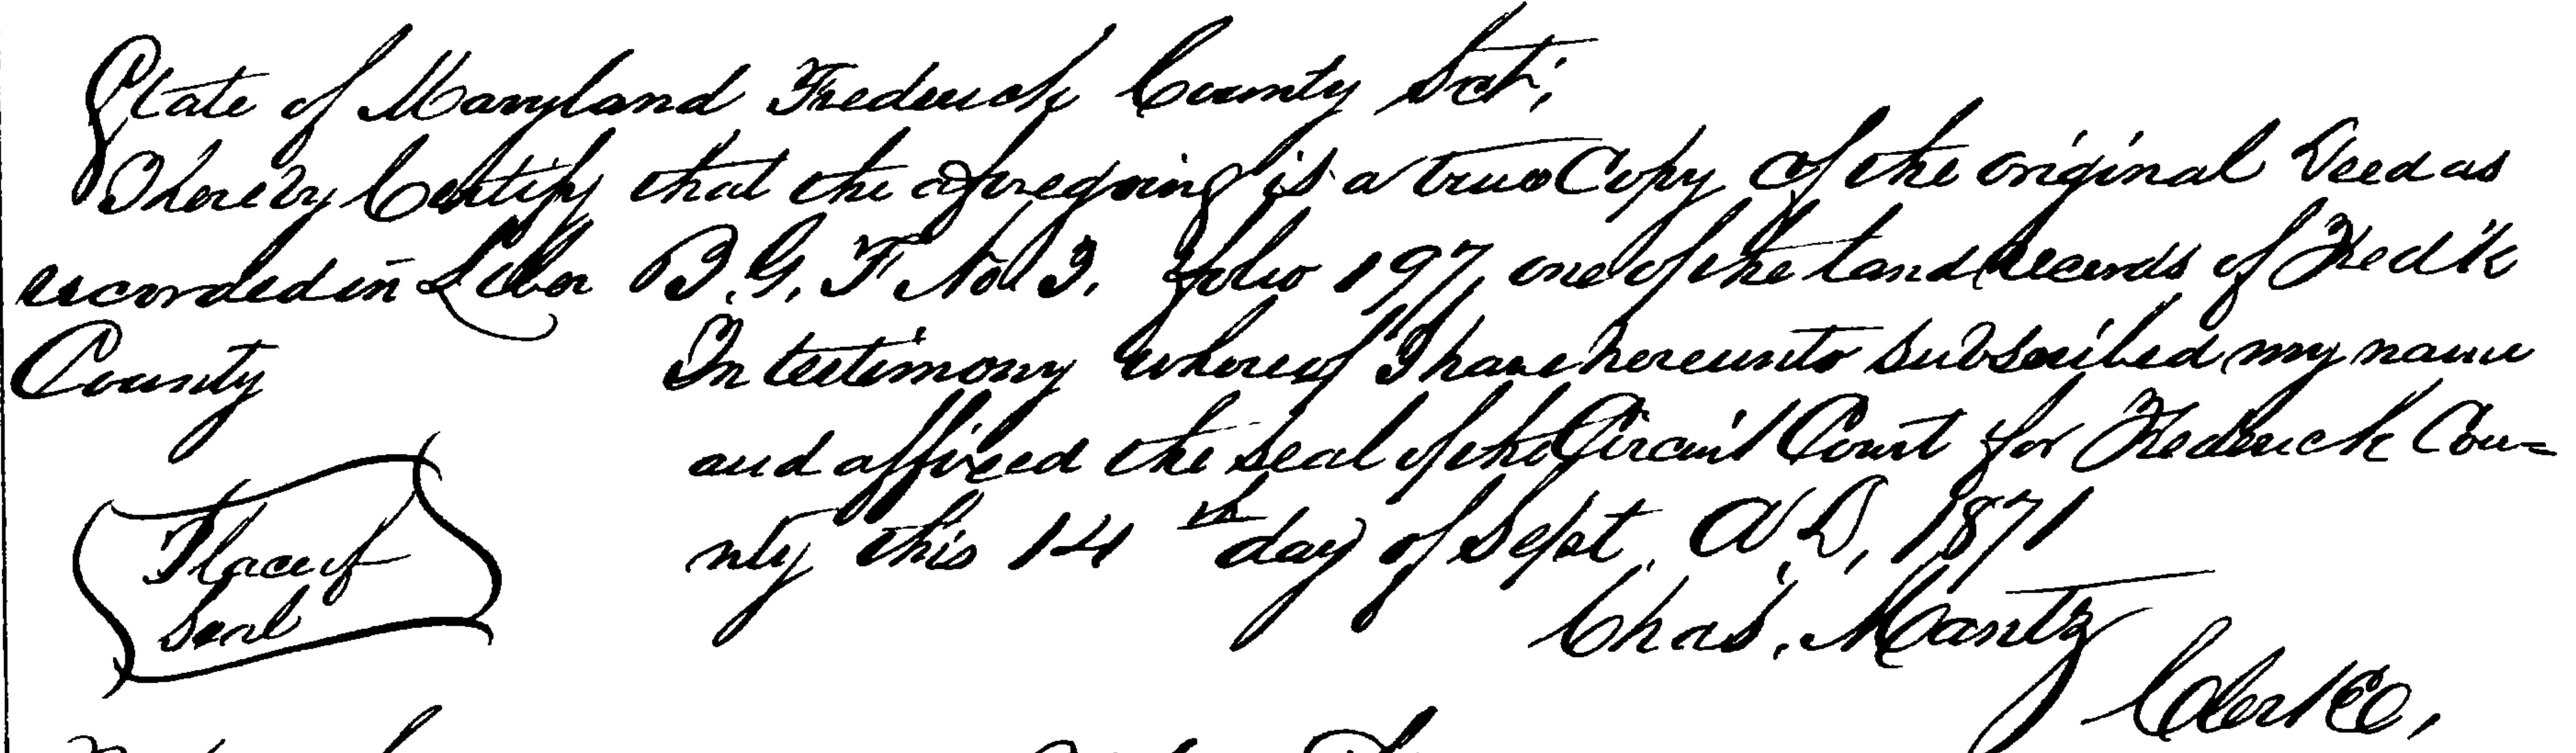 State of Maryland Frederick County Sct;
I hereby Certify that the aforegoing is a true Copy of the original Deed as
recorded in Liber B. G. F No 3. folio 197, one of the land records of Fredk
County
In testimony whereof I have hereunto subscribed my name
and affixed the seal of the Circuit Court for Frederick Cou=
nty this 14th day of Sept. A.D, 1871
Place of
Seal
Chas. Mantz
Clerk,